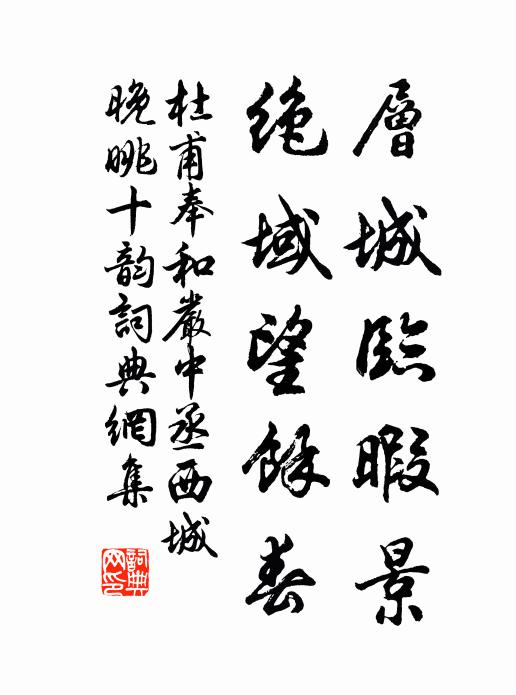 層城臨暇景
絶域望餘春
杜甫奉和嚴中丞西城
晚眺十韵詞典網集
詞典
网印